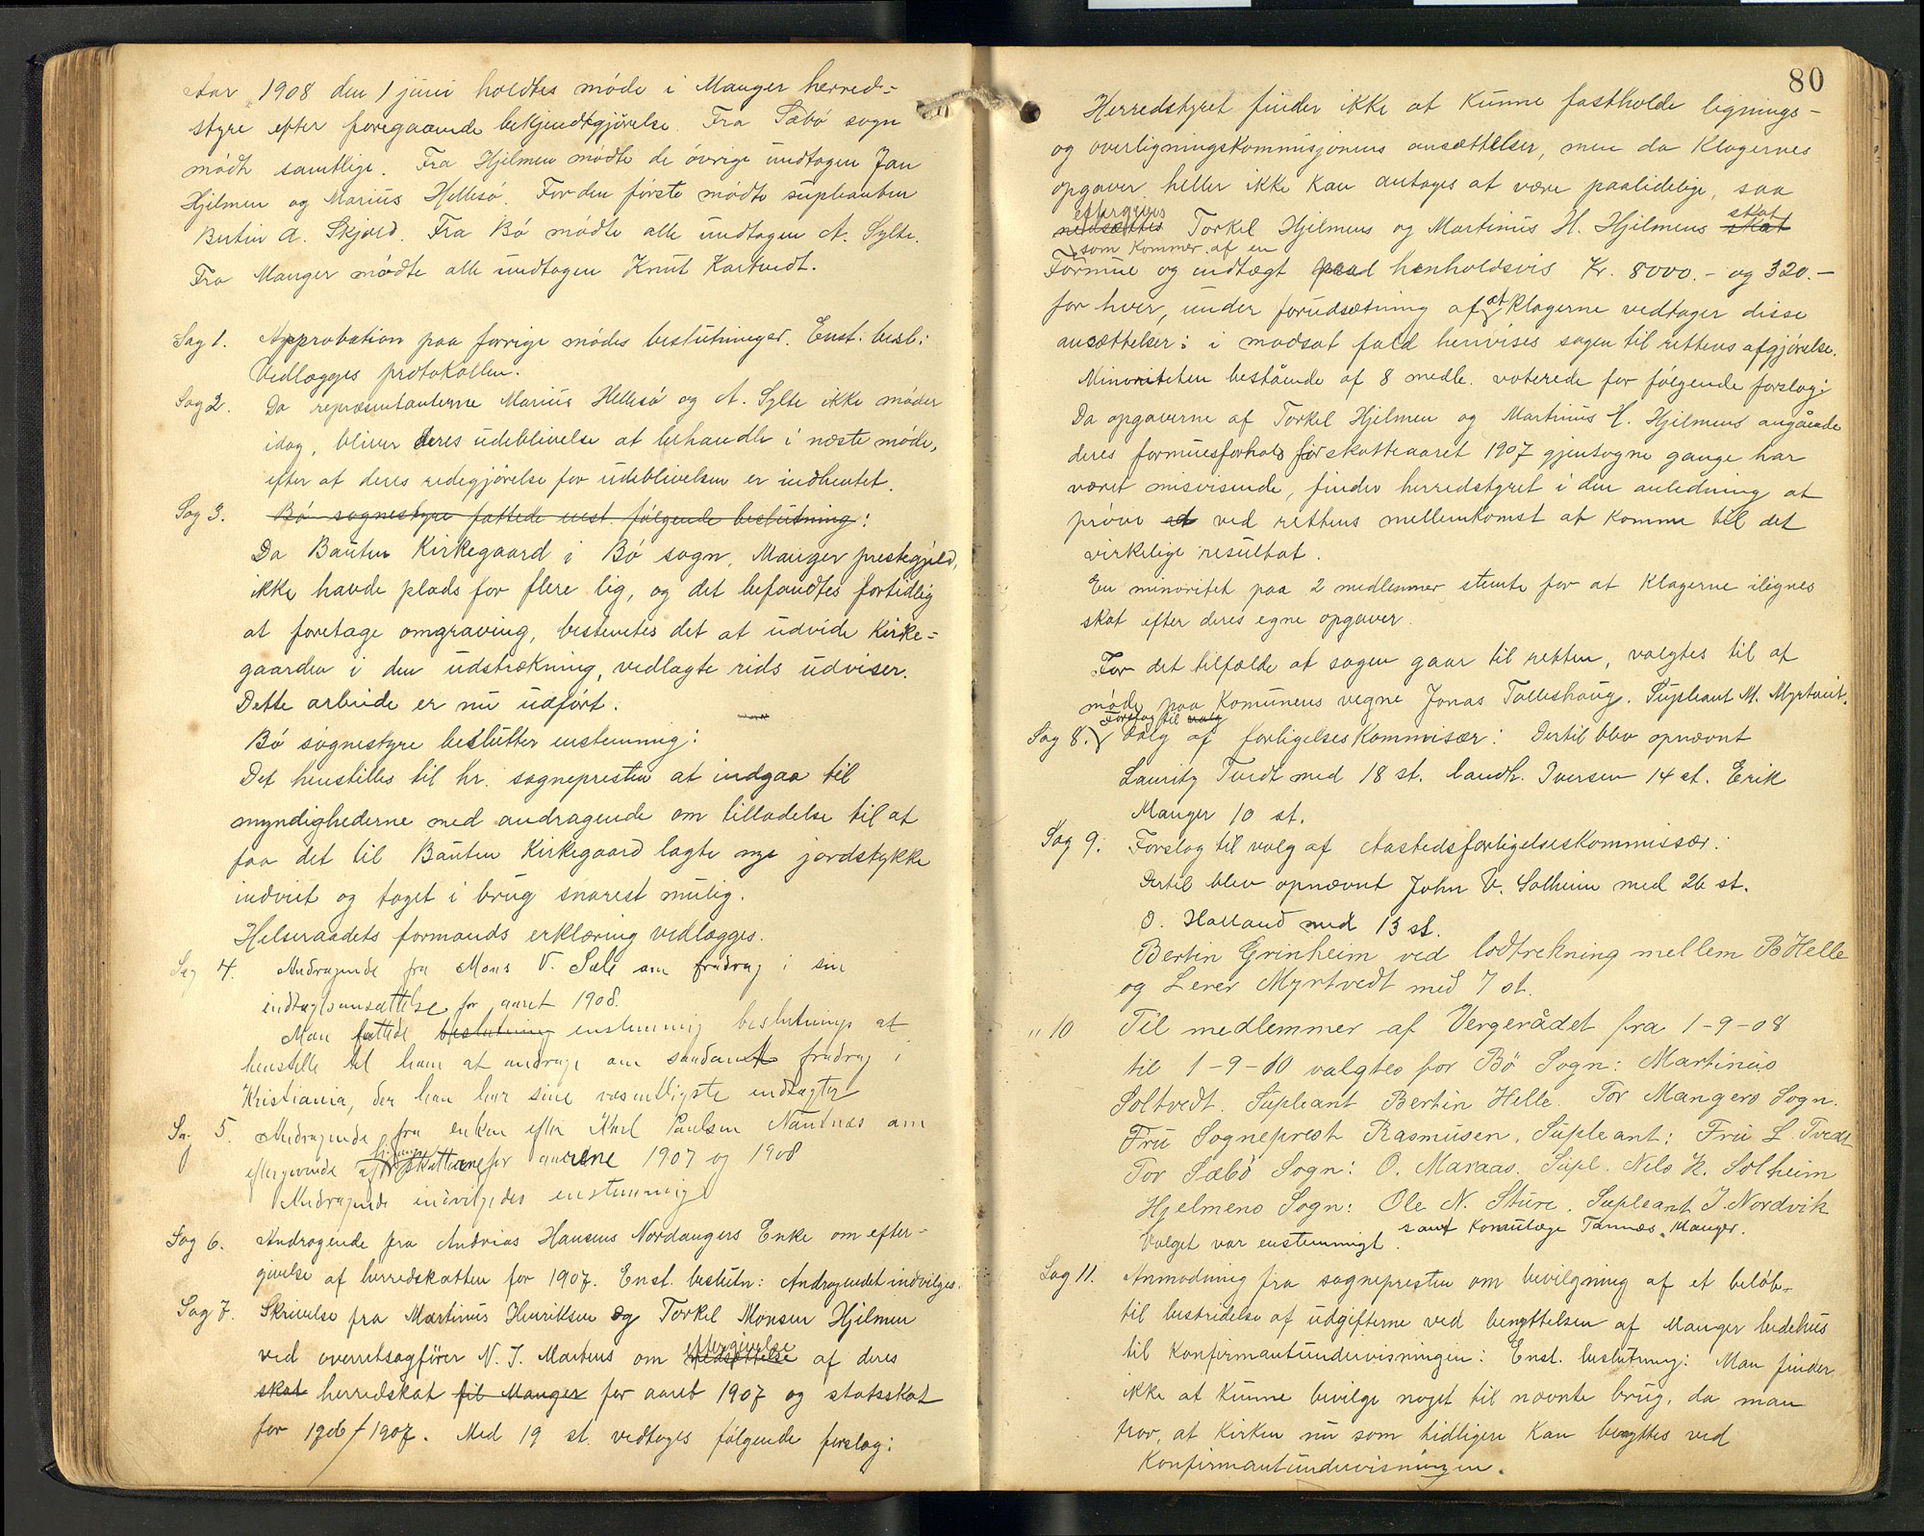 Aar 1908 den 1 juni holdtes møde i Manger herred-
styre efter foregaaende bekjendtgjørelse. Fra Sæbø sogn
mødte samtlige. Fra Hjelmen mødte de øvrige undtagen Jan
Hjelmen og Marius Hellesø. For den første mødte supleanten
Bertin A. Skjold. Fra Bø mødte alle undtagen A. Sylte.
Fra Manger mødte alle undtagen Knut Kartveit.
Sag 1. Approbation paa forrige mødes beslutninger. Enst. besl:
Vedlægges protokollen.
Sag 2. Da repræsentanterne Marius Hellesø og A. Sylte ikke møder
idag, bliver deres udeblivelse at behandle i næste møde,
efter at deres redegjørelse for udeblivelsen er indhentet.
Sag 3. Bø sognestyre fattede enst. følgende beslutning:
Da Bauten Kirkegaard i Bø sogn, Manger prestegjeld,
ikke havde plads for flere lig, og det befandtes fortidlig
at foretage omgraving, bestemtes det at udvide Kirke-
gaarden i den udstrækning, vedlagte rids udviser.
Dette arbeide er nu udført.
Bø sognestyre beslutter enstemmig:
Det henstilles til hr. sognepresten at indgaa til
myndighederne med andragende om tilladelse til at
faa det til Bauten Kirkegaard lagte nye jordstykke
indviet og taget i brug snarest mulig.
Helseraadets formands erklæring vedlægges.
Sag 4. Andragende fra Mons V. Sæle om fradrag i sin
indtægtsansættelse for aaret 1908.
Man fattede beslutning enstemmig beslutning at
henstille til ham at andrage om saadant fradrag i
Kristiania, der han har sine væsentligste indtægter
Sag 5. Andragende fra enken efter Karl Paulsen Nautnes om
eftergivende af skatterne for aarene 1907 og 1908
Andragende indvilgedes enstemmig
Sag 6. Andragende fra Andreas Hansens Nordangers Enke om efter-
givelse af herredskatten for 1907. Enst. beslutn: Andragendet indvilges.
Sag 7. Skrivelse fra Martinus Henriksen og Torkel Monsen Hjelmen
eftergivelse
ved overretsagfører N. J. Martens om nedsættelse af deres
skat herredskat til Manger for aaret 1907 og statsskat
for 1906/1907. Med 19 st. vedtoges følgende forslag:
80
Herredstyret finder ikke at kunne fastholde lignings-
og overligningskommisjonens ansættelser, men da Klagernes
opgaver heller ikke kan antages at være paalidelige, saa
eftergives skat
nedsættes Torkel Hjelmens og Martinus H. Hjelmens skat
som kommer af en
Formue og indtægt paa henholdsvis Kr. 8000.- og 320.-
for hver, under forudsætning af at Klagerne vedtager disse
ansættelser; i modsat fald henvises sagen til rettens afgjørelse.
Minoriteten bestående af 8 medle. voterede for følgende forslag:
Da opgaverne af Torkel Hjelmen og Martinus H. Hjelmens angående
deres formuesforhold for skatteaaret 1907 gjentagne gange har
været misvisende, finder herredstyret i den anledning at
prøve at ved rettens mellemkomst at komme til det
virkelige resultat.
En minoritet paa 2 medlemmer stemte for at Klagerne ilignes
skat efter deres egne opgaver.
For det tilfælde at sagen gaar til retten, valgtes til at
møde paa Komunens vegne Jonas Talleshaug. Supleant M. Myrtveit.
Forslag til valg
Sag 8. Valg af forligelseskommisær: Dertil blev opnævnt
Lauritz Tvedt med 18 st. landh. Iversen 14 st. Erik
Manger 10 st.
Sag 9. Forslag til valg af Aastedsforligelseskommissær:
Dertil blev opnævnt John V. Solheim med 26 st.
O. Halland med 13 st.
Bertin Grinheim ved lodtrekning mellem B Helle
og Lever Myrtvedt med 7 st.
" 10 Til medlemmer af Vergerådet fra 1-9-08
til 1-9-10 valgtes for Bø Sogn: Martinus
Soltvedt. Supleant Bertin Helle. For Mangers Sogn.
Fru Sogneprest Rasmusen. Supleant: Fru L. Tvedt
For Sæbø Sogn: O. Maraas. Supl. Nils K. Solheim
Hjelmens Sogn: Ole N. Sture. Supleant J. Nordvik
samt Komulæge Tannæs, Manger.
Valget var enstemmigt.
Sag 11. Anmodning fra sognepresten om bevilgning af et beløb
til bestridelse af udgifterne ved benyttelsen af Manger bedehus
til Konfirmantundervisningen: Enst. beslutning: Man finder
ikke at kunne bevilge noget til nævnte brug, da man
tror, at kirken nu som tidligere kan benyttes ved
Konfirmantundervisningen.